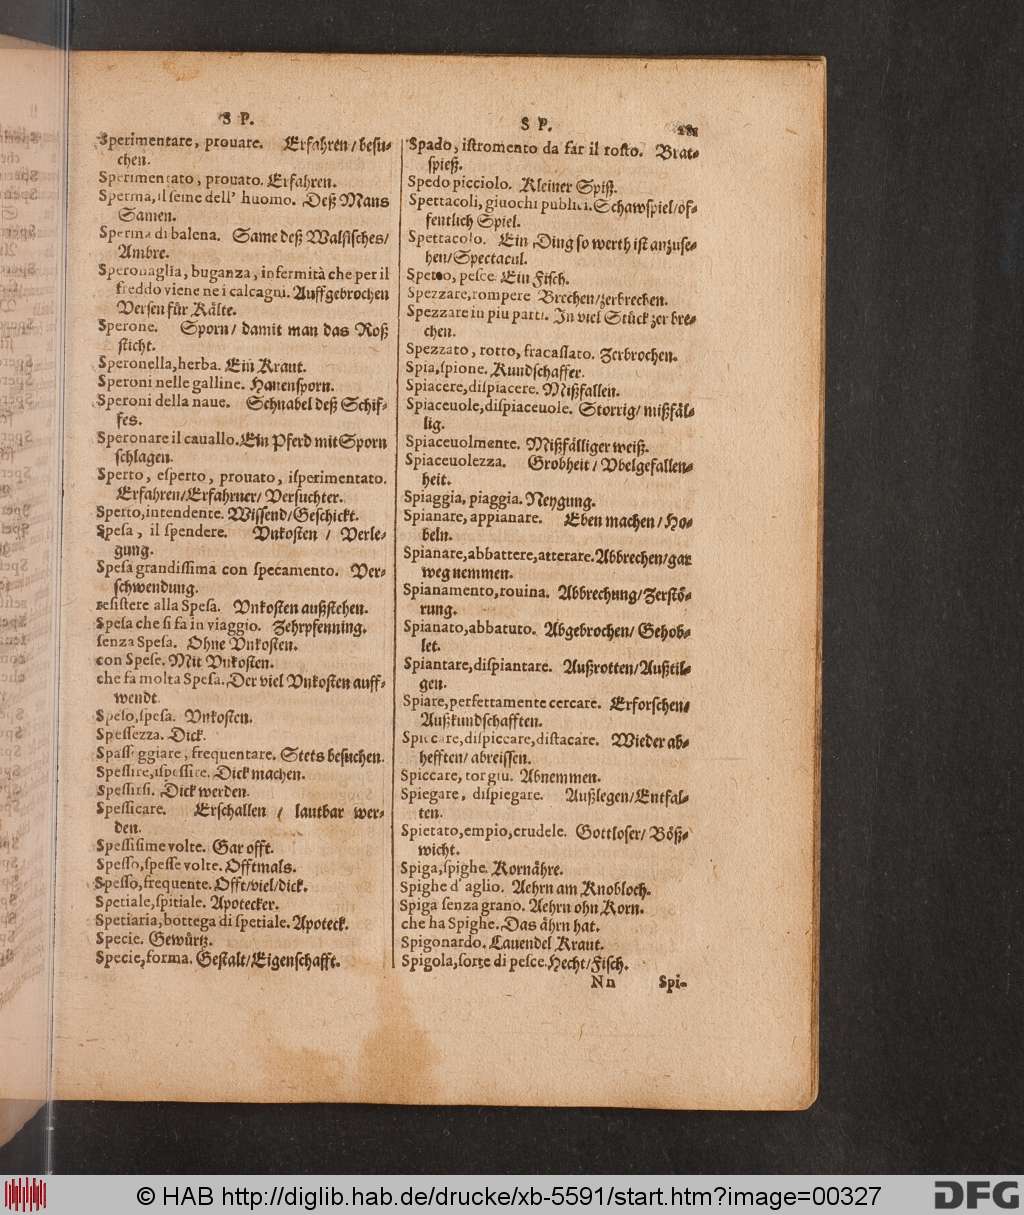 S P.
Sperimentare, prouare. Erfahren / besu-
chen.
Sperimentato, prouato. Erfahren.
Sperma, il seme dell' huomo. Deß Mans
Samen.
Sperma di balena. Same deß Walfisches/
Ambre.
Speronaglia, buganza, infermità che per il
freddo viene ne i calcagni. Auffgebrochen
Versen für Kälte.
Sperone. Sporn/ damit man das Roß
sticht.
Speronella, herba. Ein Kraut.
Speroni nelle galline. Hanensporn.
Speroni della naue. Schnabel deß Schif-
fes.
Speronare il cauallo. Ein Pferd mit Sporn
schlagen.
Sperto, esperto, prouato, isperimentato.
Erfahren/Erfahrner/ Versuchter.
Sperto, intendente. Wissend/Geschickt.
Spesa, il spendere. Vnkosten / Verle-
gung.
Spesa grandissima con specamento. Ver-
schwendung.
resistere alla Spesa. Vnkosten außstehen.
Spesa che si fa in viaggio. Zehrpfenning.
senza Spesa. Ohne Vnkosten.
con Spese. Mit Vnkosten.
che fa molta Spesa. Der viel Vnkosten auff-
wendt.
Speso, spesa. Vnkosten.
Spessezza. Dick.
Spasseggiare, frequentare. Stets besuchen.
Spessire, ispessire. Dick machen.
Spessirsi. Dick werden.
Spessicare. Erschallen / lautbar wer-
den.
Spessisime volte. Gar offt.
Spesso, spesse volte. Offtmals.
Spesso, frequente. Offt/viel/dick.
Spetiale, spitiale. Apotecker.
Spetiaria, bottega di spetiale. Apoteck.
Specie. Gewürtz.
Specie, forma. Gestalt/Eigenschafft.
S P.
Spado, istromento da far il rosto. Brat-
spieß.
Spedo picciolo. Kleiner Spiß.
Spettacoli, giuochi publici. Schawspiel/öf-
fentlich Spiel.
Spettacolo. Ein Ding so werth ist anzuse-
hen/Spectacul.
pesce. Ein Fisch.
Spezzare, rompere Brechen/zerbrechen.
Spezzare in piu parti. In viel Stück zerbre-
chen.
Spezzato, rotto, fracassato. Zerbrochen.
Spia, spione. Kundschaffer.
Spiacere, dispiacere. Mißfallen.
Spiaceuole, dispiaceuole. Storrig/ mißfäl-
lig.
Spiaceuolmente. Mißfälliger weiß.
Spiaceuolezza. Grobheit / Vbelgefallen-
heit.
Spiaggia, piaggia. Neygung.
Spianare, appianare. Eben machen / Ho-
beln.
Spianare, abbattere, atterare. Abbrechen/gar
weg nemmen.
Spianamento, rouina. Abbrechung/Zerstö-
rung.
Spianato, abbatuto. Abgebrochen/ Gehob-
let.
Spiantare, dispiantare. Außrotten/Außtil-
gen.
Spiare, perfettamente cercare. Erforschen/
Außkundschafften.
Spiccare, dispiccare, distacare. Wieder ab-
hefften/ abreissen.
Spiccare, tor giu. Abnemmen.
Spiegare, dispiegare. Außlegen/Entfal-
ten.
Spietato, empio, crudele. Gottloser/ Böß-
wicht.
Spiga, spighe. Kornähre.
Spighe d' aglio. Aehrn am Knobloch.
Spiga senza grano. Aehrn ohn Korn.
che ha Spighe. Das ährn hat.
Spigonardo. Lauendel Kraut.
Spigola, sorte di pesce. Hecht/Fisch.
Nn Spi-
© HAB http://diglib.hab.de/drucke/xb-5591/start.htm?image=00327
DFG